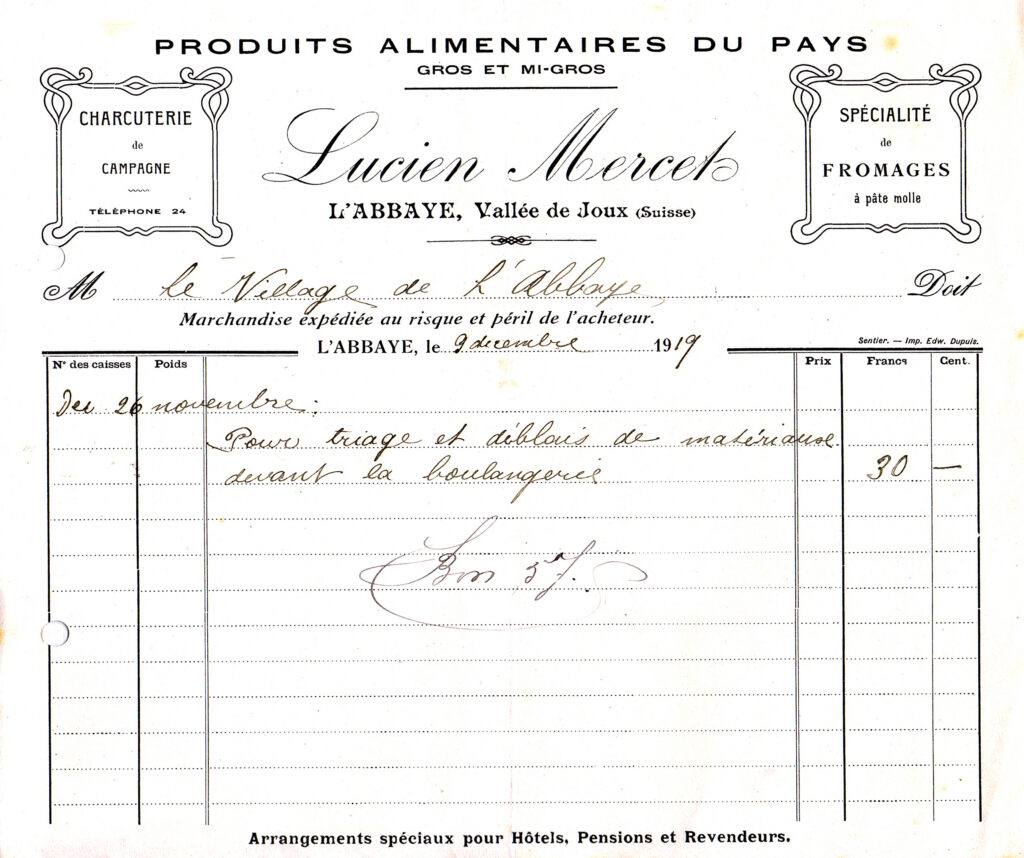 PRODUITS ALIMENTAIRES DU PAYS
GROS ET MI-GROS
CHARCUTERIE
de
CAMPAGNE
TÉLÉPHONE 24
Lucien Mercet
L'ABBAYE, Vallée de Joux (Suisse)
SPÉCIALITÉ
de
FROMAGES
à pâte molle
M le Village de L'Abbaye, Doit
Marchandise expédiée au risque et péril de l'acheteur.
L'ABBAYE, le 9 decembre 1919
Sentier. — Imp. Edw. Dupuis.
Nº des caisses Poids Prix Francs Cent.
Du 26 novembre:
Pour triage et déblais de matériaux
devant la boulangerie 30 —
Bon 57.
Arrangements spéciaux pour Hôtels, Pensions et Revendeurs.